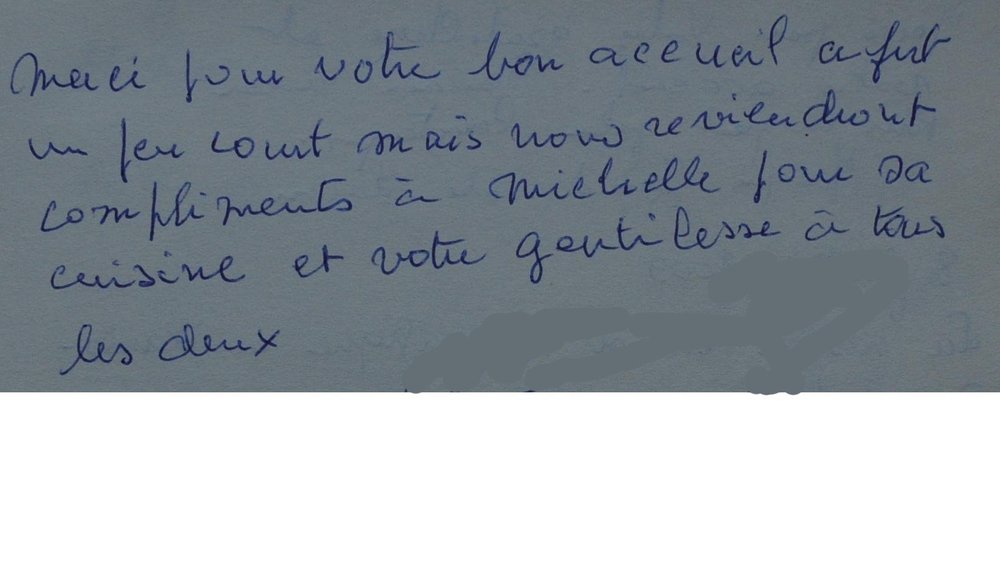 Merci pour votre bon accueil a fut
un peu court mais nous reviendront
compliments à Michelle pour sa
cuisine et votre gentilesse à tous
les deux